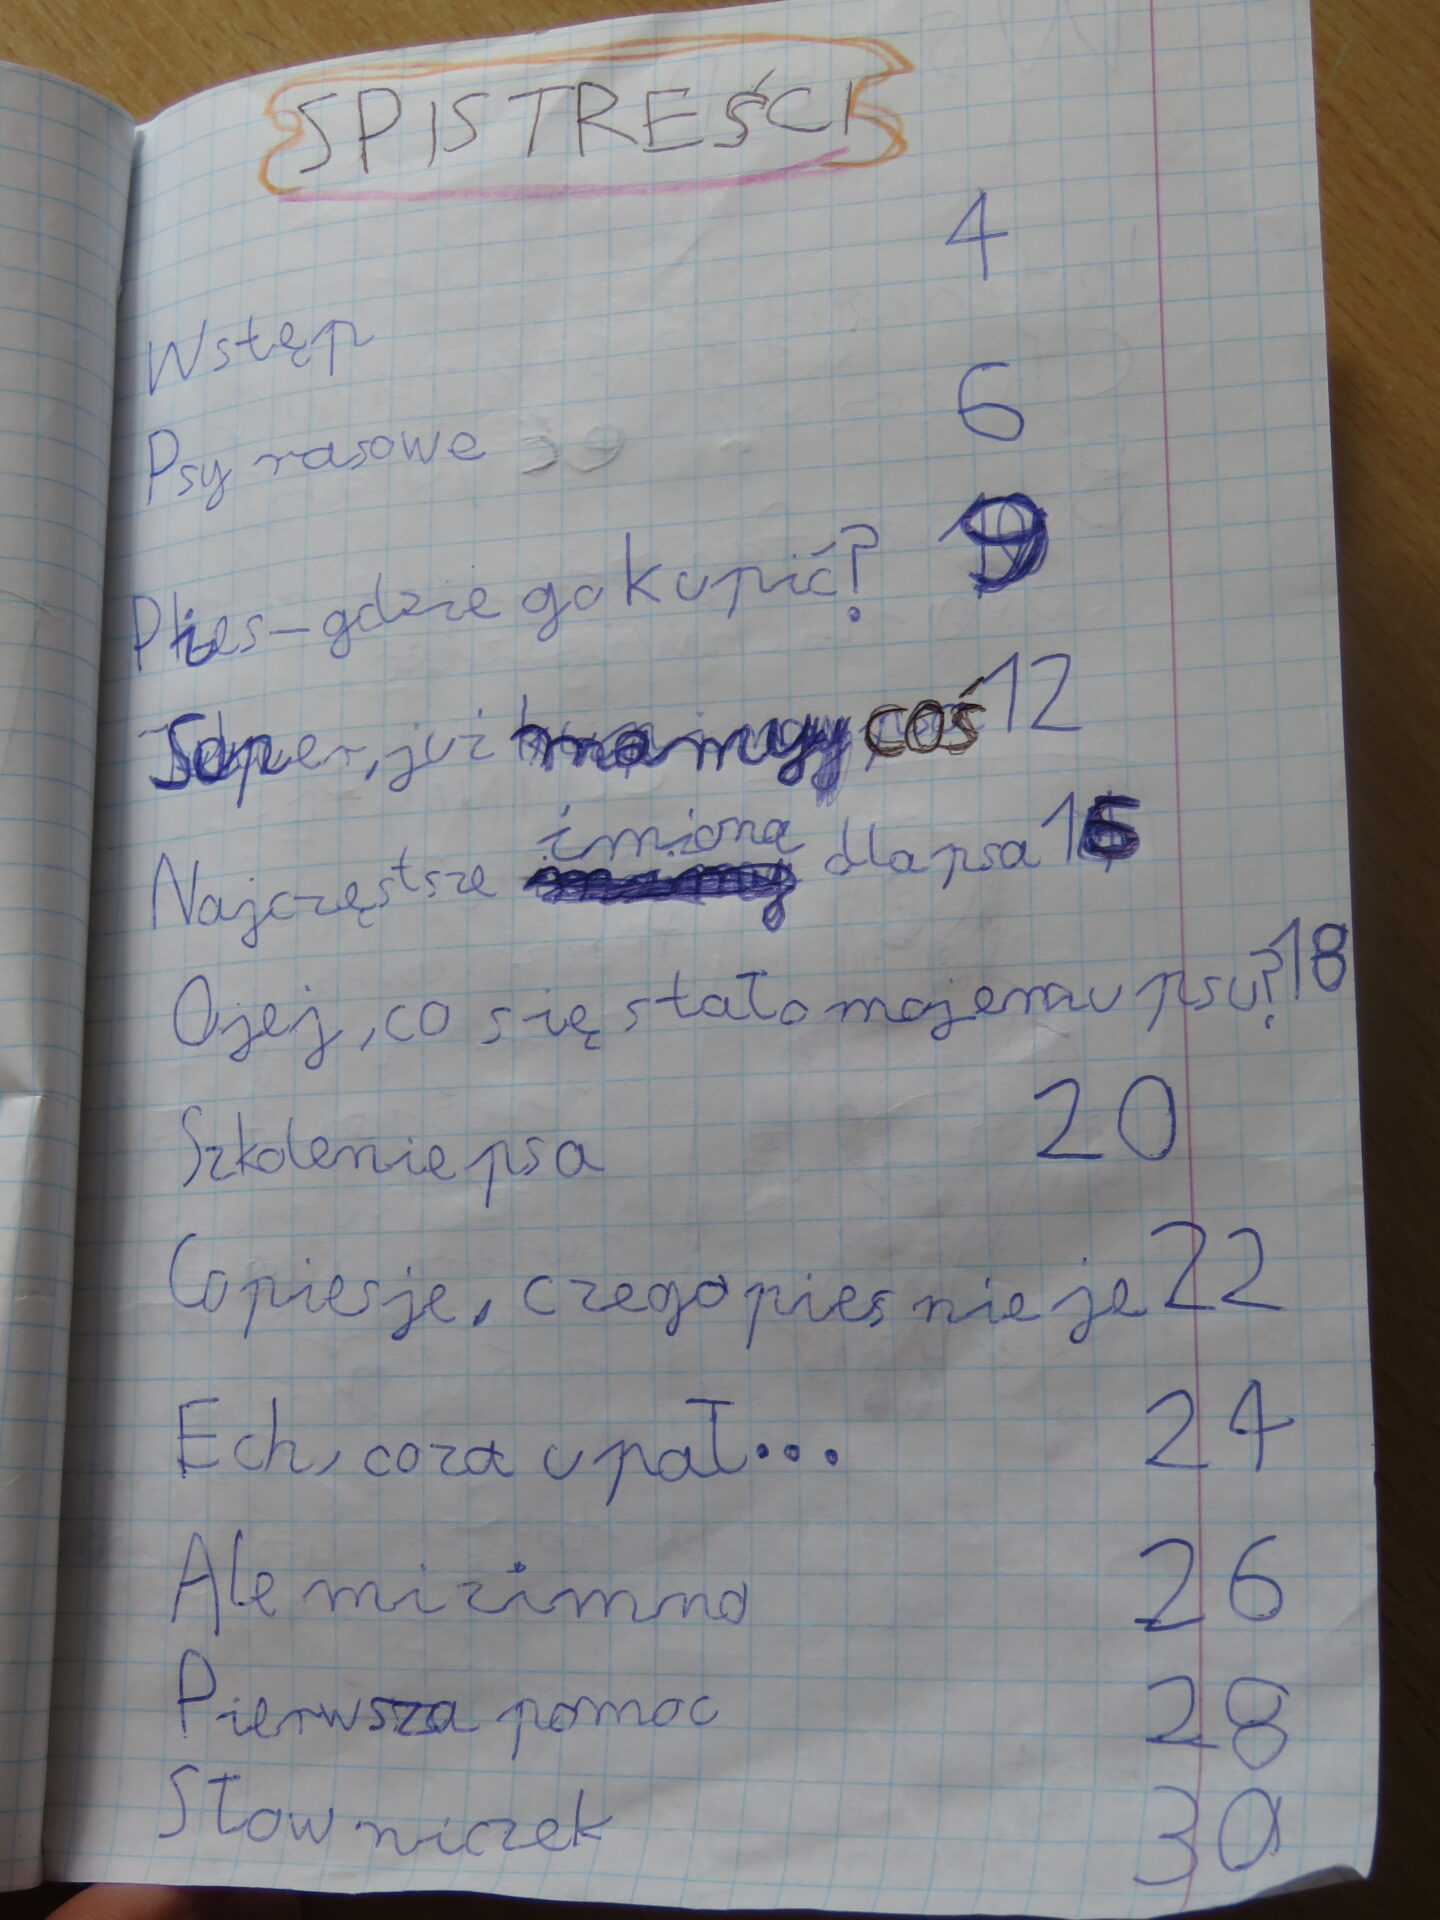 SPIS TREŚCI
Wstęp 4
Psy rasowe 6
Pies – gdzie go kupić? 9
Super, już mamy coś 12
Najczęstsze imiona dla psa 15
Ojej, co się stało mojemu psu? 18
Szkolenie psa 20
Co pies je, czego pies nie je 22
Ech, co za upał... 24
Ale mi zimno 26
Pierwsza pomoc 28
Słowniczek 30